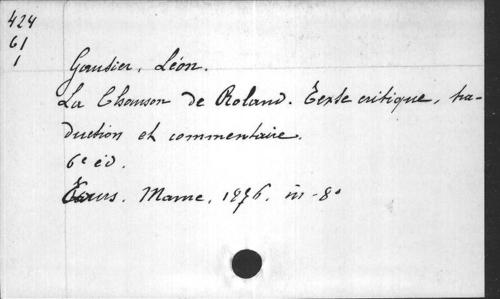 424
61
1
Gautier, Léon.
La Chanson de Roland. Texte critique, tra-
duction et commentaire.
6e éd.
Tours. Mame, 1876. in-8o